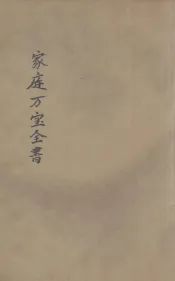 家庭万宝全書